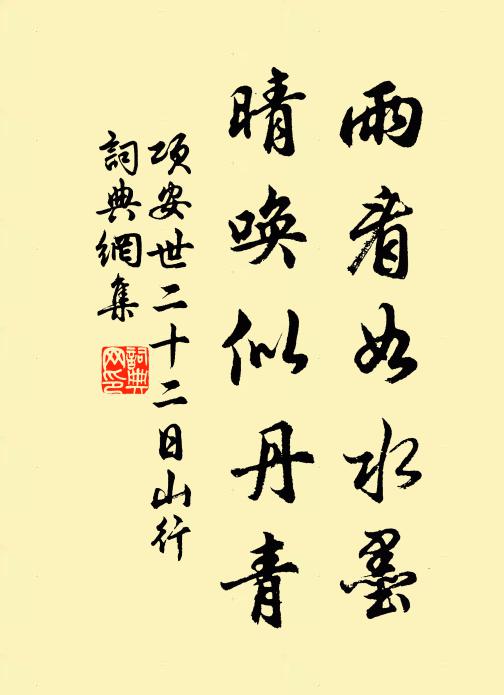 雨看如水墨
晴唤似丹青
项安世二十二日山行
詞典網集
詞典网印